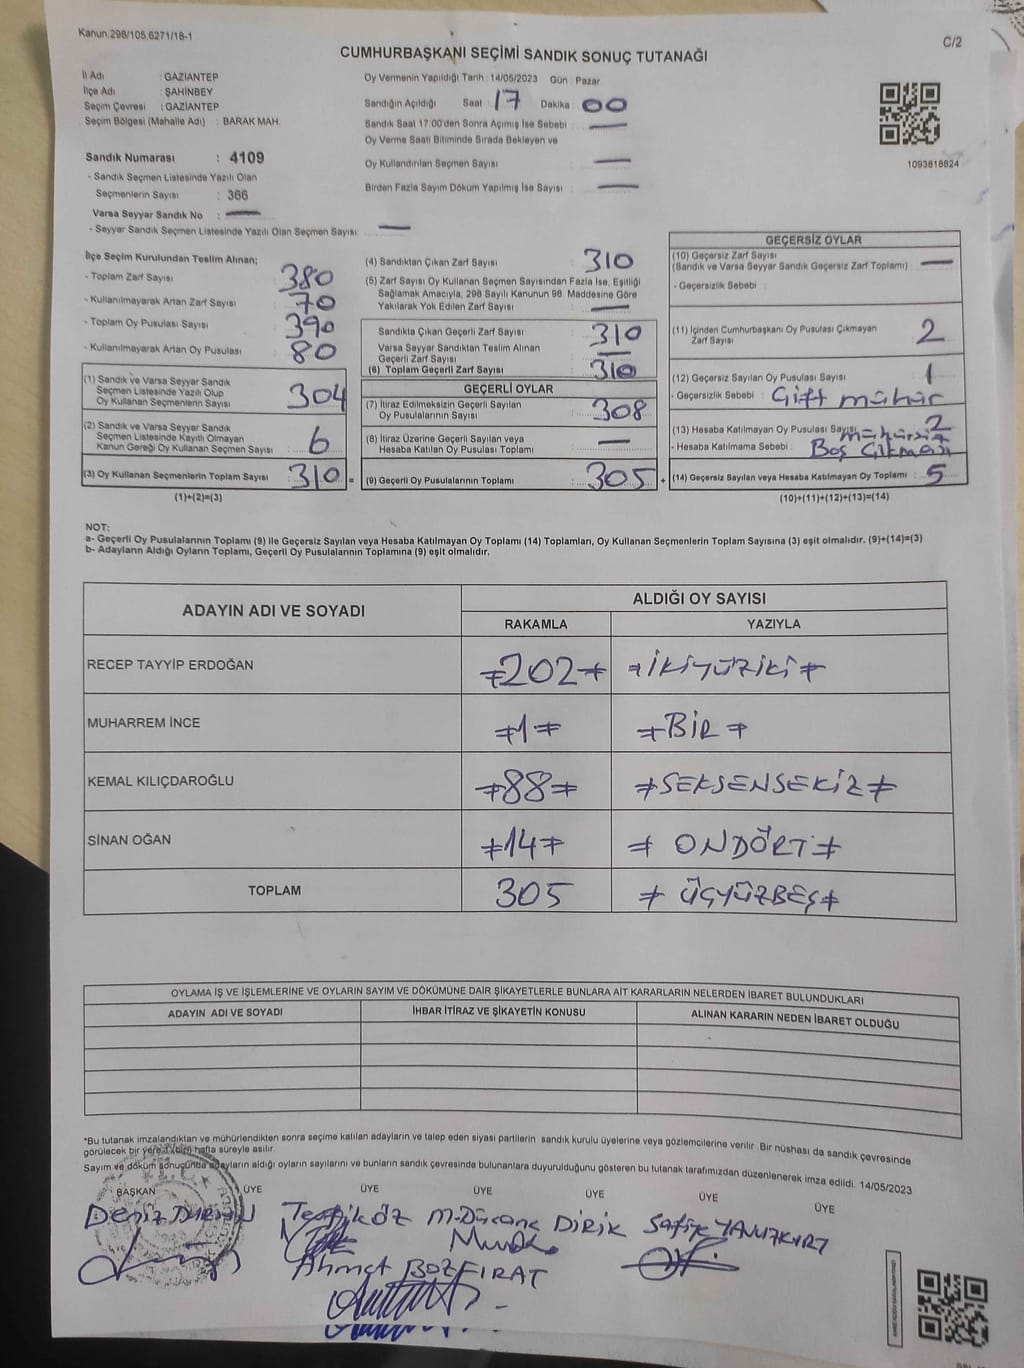 Kanun:298/105,6271/18-1
C/2
CUMHURBAŞKANI SEÇİMİ SANDIK SONUÇ TUTANAĞI
İl Adı : GAZİANTEP
İlçe Adı : ŞAHİNBEY
Seçim Çevresi : GAZİANTEP
Seçim Bölgesi (Mahalle Adı) : BARAK MAH.
Oy Vermenin Yapıldığı Tarih : 14/05/2023 Gün : Pazar
Sandığın Açıldığı Saat : 17 Dakika : 00
Sandık Saat 17.00'den Sonra Açımış İse Sebebi : —
Oy Verme Saati Bitiminde Sırada Bekleyen ve
Oy Kullandırılan Seçmen Sayısı : —
Birden Fazla Sayım Döküm Yapılmış İse Sayısı : —
1093818824
Sandık Numarası : 4109
- Sandık Seçmen Listesinde Yazılı Olan
Seçmenlerin Sayısı : 366
Varsa Seyyar Sandık No : —
- Seyyar Sandık Seçmen Listesinde Yazılı Olan Seçmen Sayısı : —
İlçe Seçim Kurulundan Teslim Alınan;
- Toplam Zarf Sayısı : 380
- Kullanılmayarak Artan Zarf Sayısı : 70
- Toplam Oy Pusulası Sayısı : 390
- Kullanılmayarak Artan Oy Pusulası : 80
(1) Sandık ve Varsa Seyyar Sandık
Seçmen Listesinde Yazılı Olup
Oy Kullanan Seçmenlerin Sayısı : 304
(2) Sandık ve Varsa Seyyar Sandık
Seçmen Listesinde Kayıtlı Olmayan
Kanun Gereği Oy Kullanan Seçmen Sayısı : 6
(3) Oy Kullanan Seçmenlerin Toplam Sayısı : 310 =
(1)+(2)=(3)
(4) Sandıktan Çıkan Zarf Sayısı : 310
(5) Zarf Sayısı Oy Kullanan Seçmen Sayısından Fazla İse, Eşitliği
Sağlamak Amacıyla, 298 Sayılı Kanunun 98. Maddesine Göre
Yakılarak Yok Edilen Zarf Sayısı : —
Sandıkta Çıkan Geçerli Zarf Sayısı : 310
Varsa Seyyar Sandıktan Teslim Alınan
Geçerli Zarf Sayısı : —
(6) Toplam Geçerli Zarf Sayısı : 310
GEÇERLİ OYLAR
(7) İtiraz Edilmeksizin Geçerli Sayılan
Oy Pusulalarının Sayısı : 308
(8) İtiraz Üzerine Geçerli Sayılan veya
Hesaba Katılan Oy Pusulası Toplamı : —
(9) Geçerli Oy Pusulalarının Toplamı : 305 +
GEÇERSİZ OYLAR
(10) Geçersiz Zarf Sayısı
(Sandık ve Varsa Seyyar Sandık Geçersiz Zarf Toplamı) : —
- Geçersizlik Sebebi :
(11) İçinden Cumhurbaşkanı Oy Pusulası Çıkmayan
Zarf Sayısı : 2
(12) Geçersiz Sayılan Oy Pusulası Sayısı : 1
- Geçersizlik Sebebi : Çift mühür
(13) Hesaba Katılmayan Oy Pusulası Sayısı : 2
mühürsüz
- Hesaba Katılmama Sebebi : Boş Çıkması
(14) Geçersiz Sayılan veya Hesaba Katılmayan Oy Toplamı : 5
(10)+(11)+(12)+(13)=(14)
NOT:
a- Geçerli Oy Pusulalarının Toplamı (9) ile Geçersiz Sayılan veya Hesaba Katılmayan Oy Toplamı (14) Toplamları, Oy Kullanan Seçmenlerin Toplam Sayısına (3) eşit olmalıdır. (9)+(14)=(3)
b- Adayların Aldığı Oyların Toplamı, Geçerli Oy Pusulalarının Toplamına (9) eşit olmalıdır.
ADAYIN ADI VE SOYADI
ALDIĞI OY SAYISI
RAKAMLA YAZIYLA
RECEP TAYYİP ERDOĞAN ≠202≠ ≠İKİYÜZİKİ≠
MUHARREM İNCE ≠1≠ ≠BİR≠
KEMAL KILIÇDAROĞLU ≠88≠ ≠SEKSENSEKİZ≠
SİNAN OĞAN ≠14≠ ≠ONDÖRT≠
TOPLAM 305 ≠ÜÇYÜZBEŞ≠
OYLAMA İŞ VE İŞLEMLERİNE VE OYLARIN SAYIM VE DÖKÜMÜNE DAİR ŞİKAYETLERLE BUNLARA AİT KARARLARIN NELERDEN İBARET BULUNDUKLARI
ADAYIN ADI VE SOYADI İHBAR İTİRAZ VE ŞİKAYETİN KONUSU ALINAN KARARIN NEDEN İBARET OLDUĞU
*Bu tutanak imzalandıktan ve mühürlendikten sonra seçime katılan adayların ve talep eden siyasi partilerin sandık kurulu üyelerine veya gözlemcilerine verilir. Bir nüshası da sandık çevresinde
görülecek bir yere 1 (bir) hafta süreyle asılır.
Sayım ve döküm sonucunda adayların aldığı oyların sayılarını ve bunların sandık çevresinde bulunanlara duyurulduğunu gösteren bu tutanak tarafımızdan düzenlenerek imza edildi. 14/05/2023
BAŞKAN ÜYE ÜYE ÜYE ÜYE ÜYE ÜYE
Deniz DURAN Tevfik ÖZ M. Dücane DİRİK Safiye YAVUZKURT
Ahmet BOZFIRAT